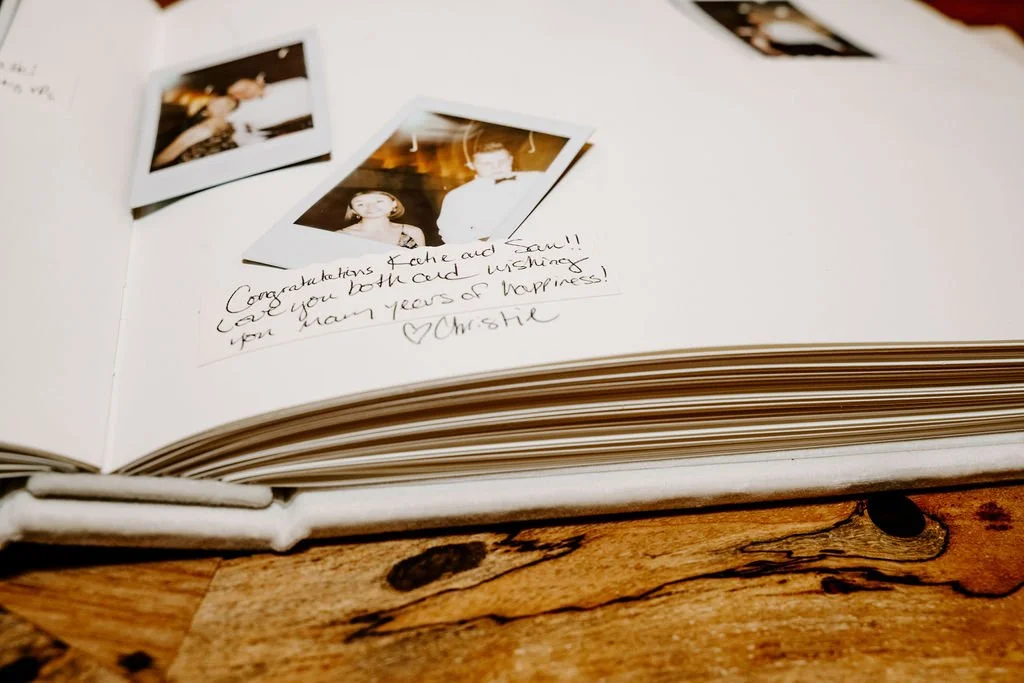 Congratulations Katie and Sam!!
Love you both and wishing
you many years of happiness!
♡Christie